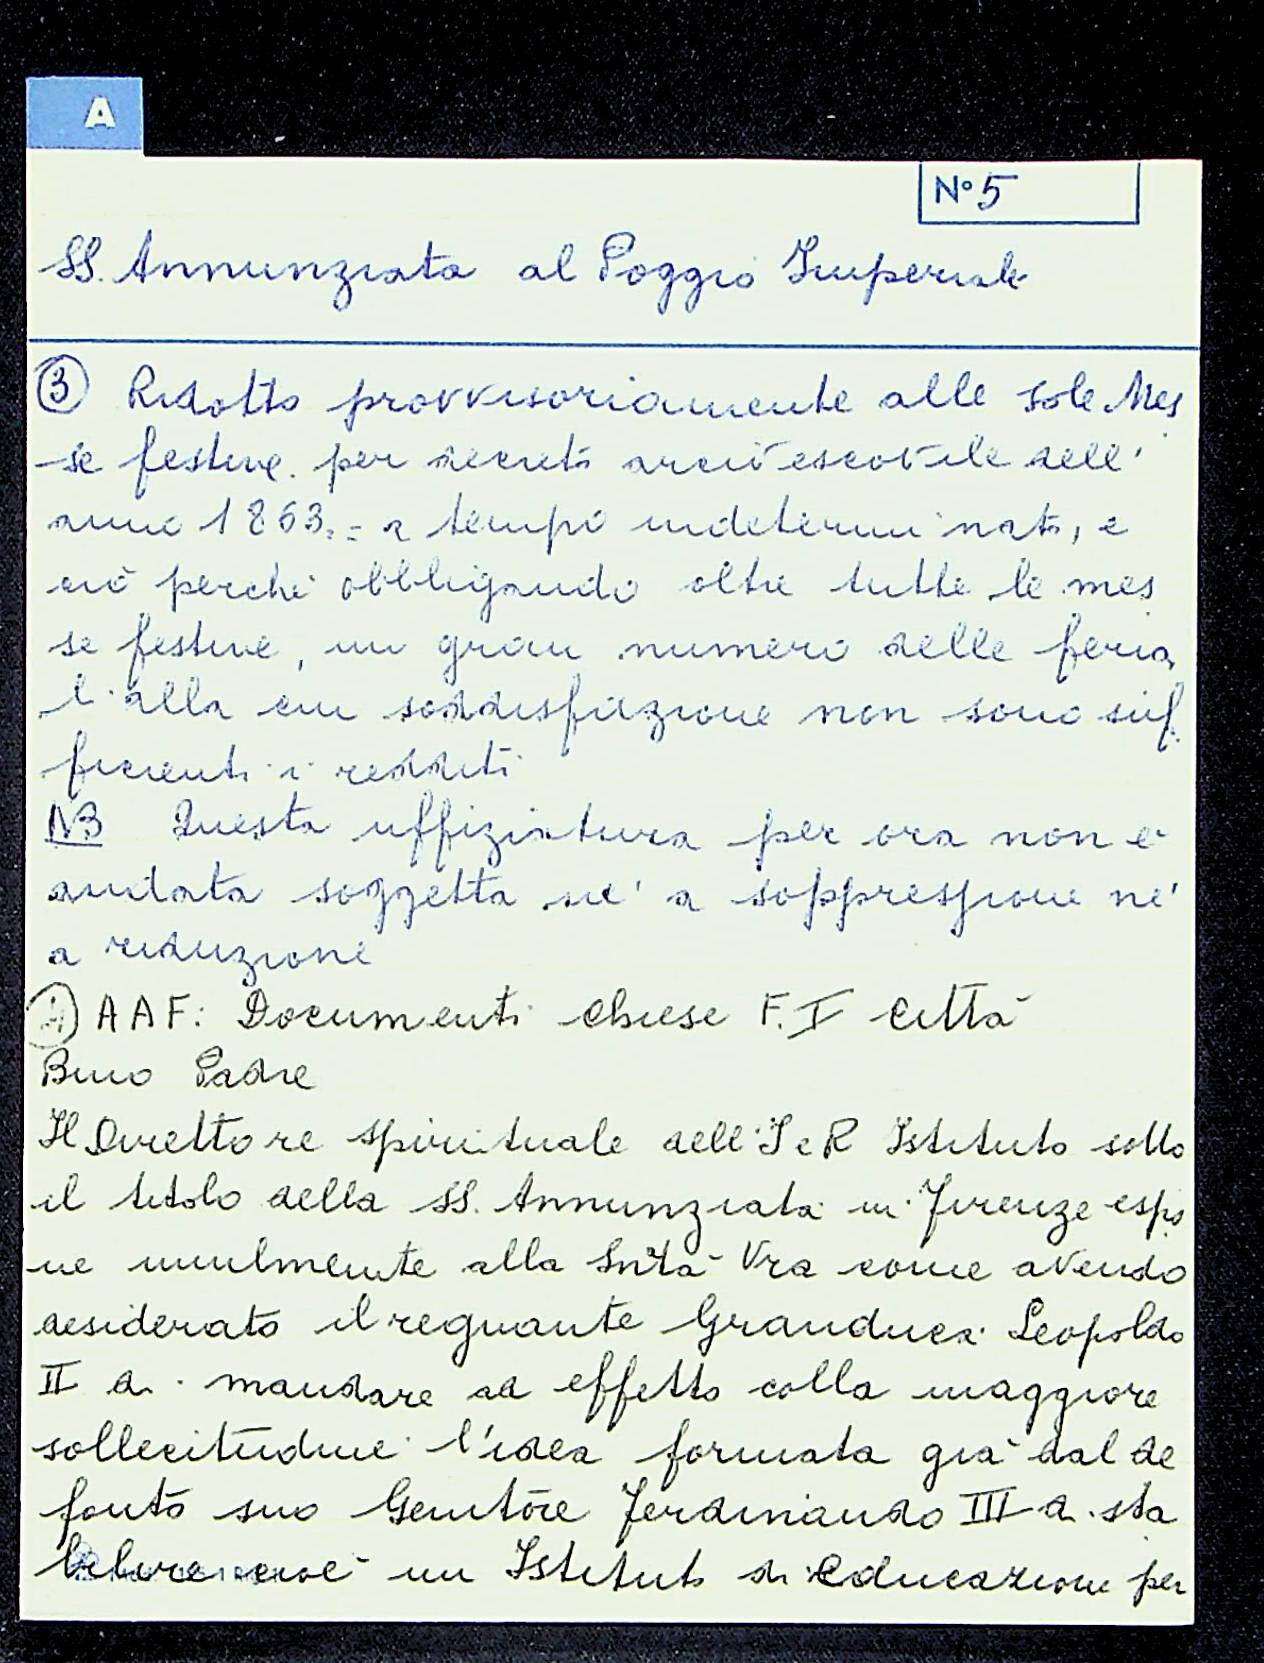 A
N° 5
SS. Annunziata al Poggio Imperiale
③ Ridotto provvisoriamente alle sole Mes
se festive per decreto arcivescovile dell'
anno 1863 = a tempo indeterminato, e
ciò perché obbligando oltre tutte le mes
se festive, un gran numero delle feria
li alla cui soddisfazione non sono suf
ficienti i redditi
NB Questa uffiziatura per ora non è
andata soggetta né a soppressione né
a riduzione
④ AAF: Documenti chiese F. I Città
Bmo Padre
Il Direttore spirituale dell'I e R Istituto sotto
il titolo della SS. Annunziata in Firenze espo
ne umilmente alla Sntà Vra come avendo
desiderato il regnante Granduca Leopoldo
II di mandare ad effetto colla maggiore
sollecitudine l'idea formata già dal de
fonto suo Genitore Ferdinando III di sta
bilire cioè un Istituto di educazione per